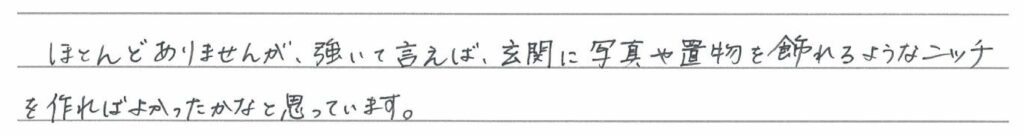 ほとんどありませんが、強いて言えば、玄関に写真や置物を飾れるようなニッチ
を作ればよかったかなと思っています。